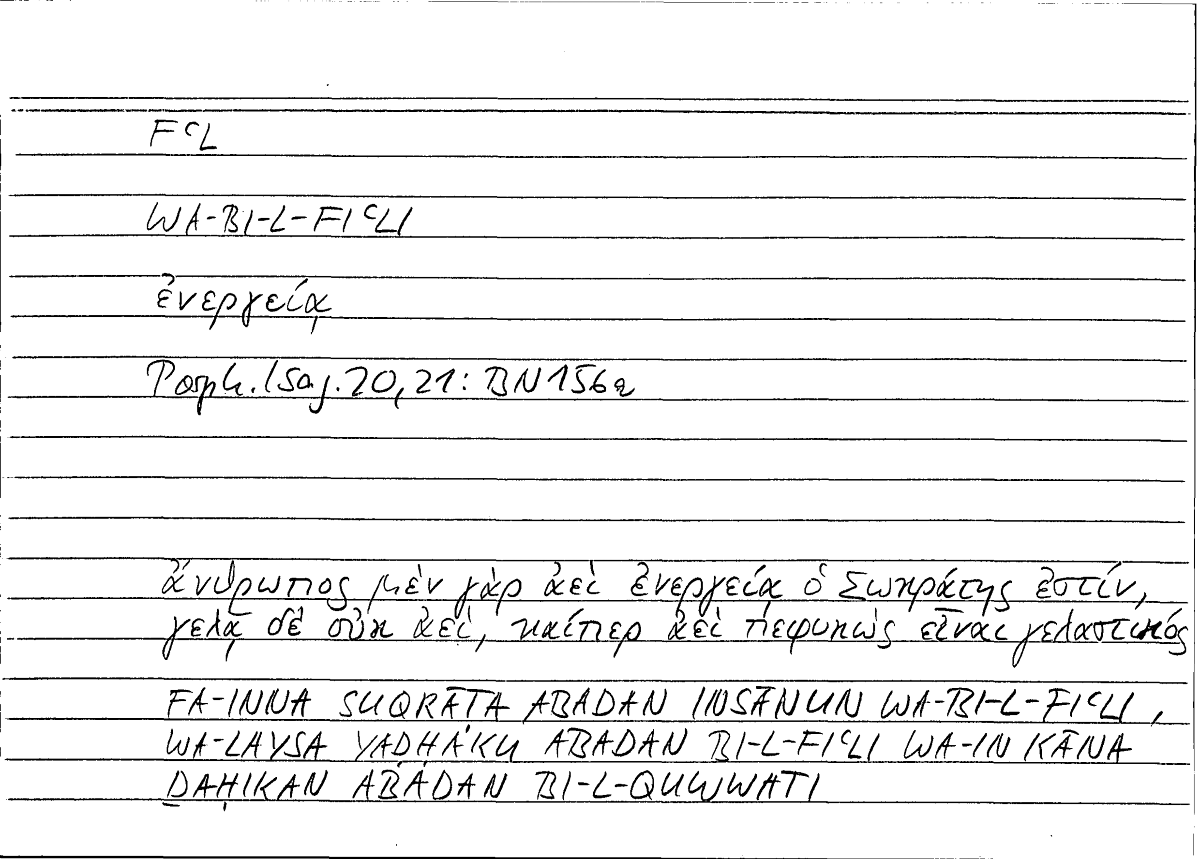 FʿL
WA-BI-L-FIʿLI
ἐνεργείᾳ
Porph. Isag. 20,21: BN 156a
ἄνθρωπος μὲν γὰρ ἀεὶ ἐνεργείᾳ ὁ Σωκράτης ἐστίν,
γελᾷ δὲ οὐκ ἀεί, καίπερ ἀεὶ πεφυκὼς εἶναι γελαστικός
FA-INNA SUQRĀTA ABADAN INSĀNUN WA-BI-L-FIʿLI,
WA-LAYSA YAḌḤAKU ABADAN BI-L-FIʿLI WA-IN KĀNA
ḌAḤIKAN ABADAN BI-L-QUWWATI